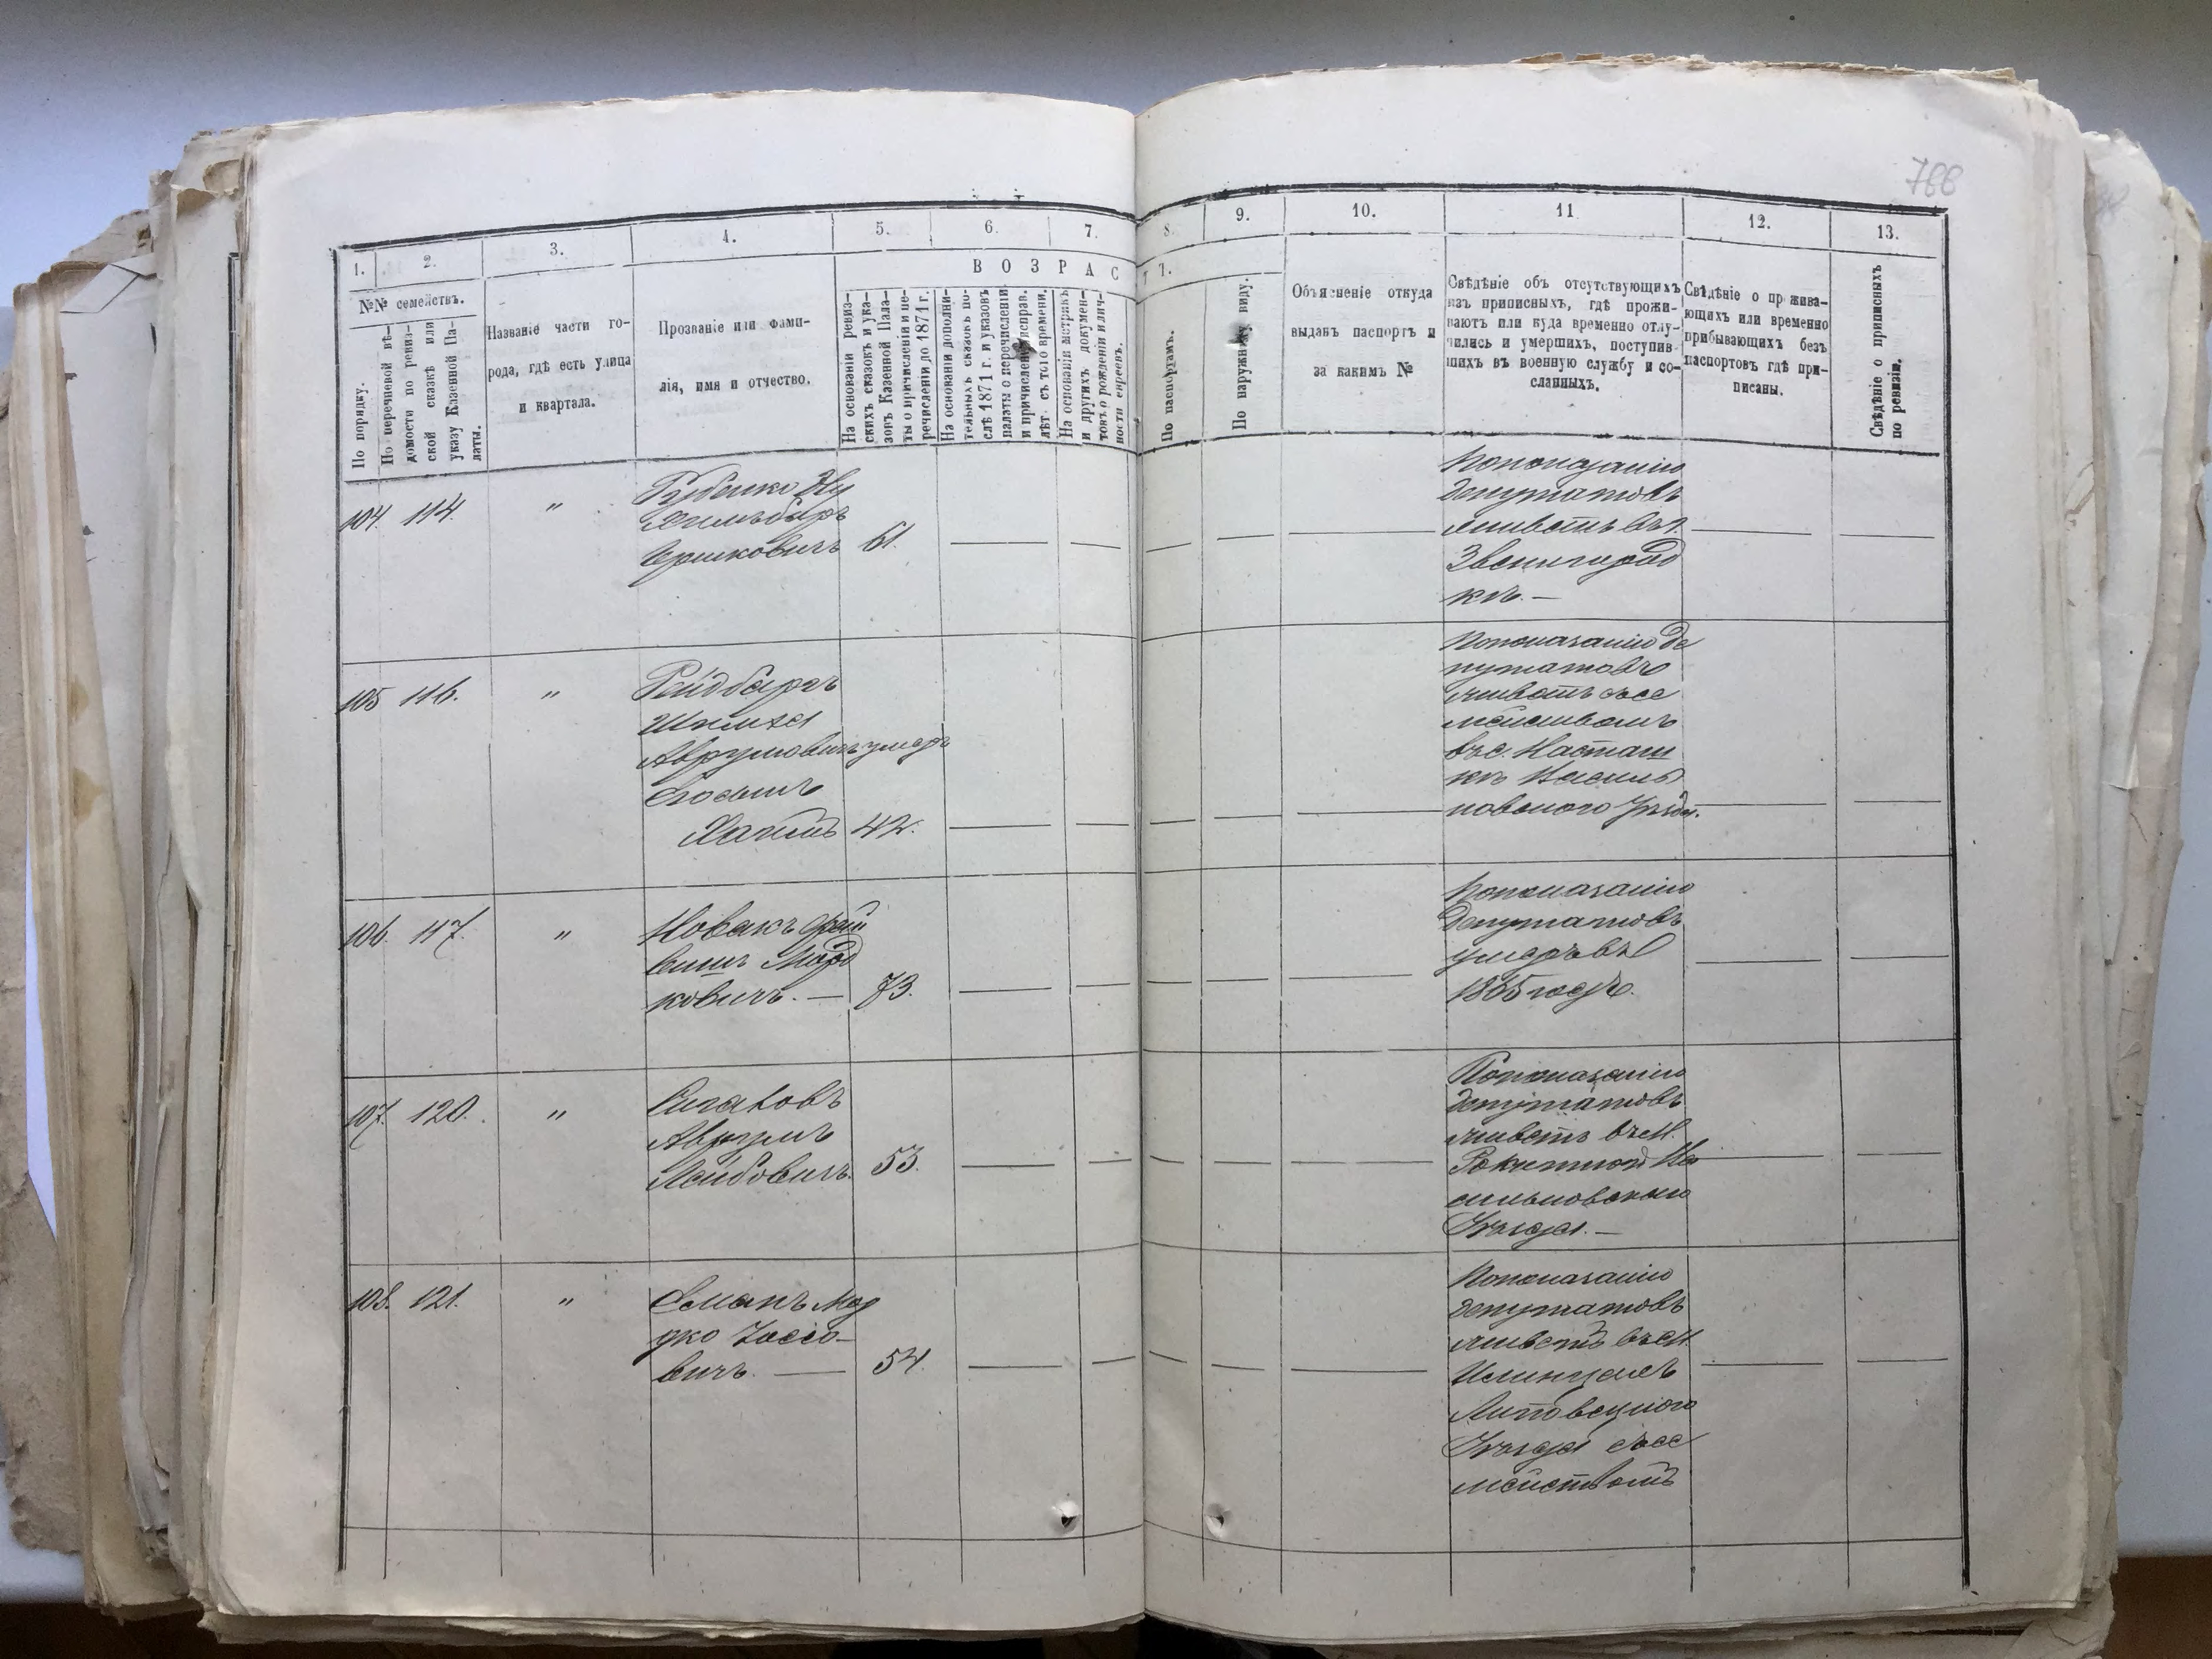 788
1.
2.
3.
4.
5.
6.
7.
8.
9.
10.
11
12.
13.
№№ семействъ.
По порядку.
По перечневой вѣ-
домости по ревиз-
ской сказкѣ или
указу Казенной Па-
латы.
Названіе части го-
рода, гдѣ есть улица
и квартала.
Прозваніе или фами-
лія, имя и отчество.
ВОЗРАСТ
На основаніи ревиз-
скихъ сказокъ и ука-
зовъ Казенной Пала-
ты о причисленіи и пе-
речисленіи до 1871 г.
На основаніи дополни-
тельныхъ сказокъ по-
слѣ 1871 г. и указовъ
палаты о перечисленіи
и причисленіи исправ.
лѣт. съ того времени.
На основаніи метрикъ
и другихъ докумен-
товъ о рожденіи и лич-
ности евреевъ.
По паспортамъ.
По наружному виду.
Объясненіе откуда
выданъ паспортъ и
за какимъ №
Свѣдѣніе объ отсутствующихъ
изъ приписныхъ, гдѣ прожи-
ваютъ или куда временно отлу-
чились и умершихъ, поступив-
шихъ въ военную службу и со-
сланныхъ.
Свѣдѣніе о прожива-
ющихъ или временно
прибывающихъ безъ
паспортовъ гдѣ при-
писаны.
Свѣдѣніе о приписныхъ
по ревизіи.
104. 114. "
Ициковичъ 61.
Попоказанію
депутатовъ
живетъ въ г.
Звенигород
кѣ. —
105 116. "
Рейдбаргъ
Шмила
Аврумовичъ умеръ
Сынъ
Хаимъ 42.
Попоказанію де
путатовъ
живетъ съ се
мействомъ
въ с. Насташ
кѣ Василь
ковского Уѣзда.
106. 117. "
Новакъ Фай
вишъ Морд
ковичъ. — 73.
Попоказанію
депутатовъ
умеръ въ
1865 году.
107. 120. "
Аврумъ
Лейбовичъ. 53.
Попоказанію
депутатовъ
живетъ въ м.
Рокитной Ва
сильковского
Уѣзда. —
108. 121. "
Мор
дко Иоссо-
вичъ. — 54.
Попоказанію
депутатовъ
живетъ въ м.
Илинцахъ
Липовецкого
Уѣзда съ се
мействомъ